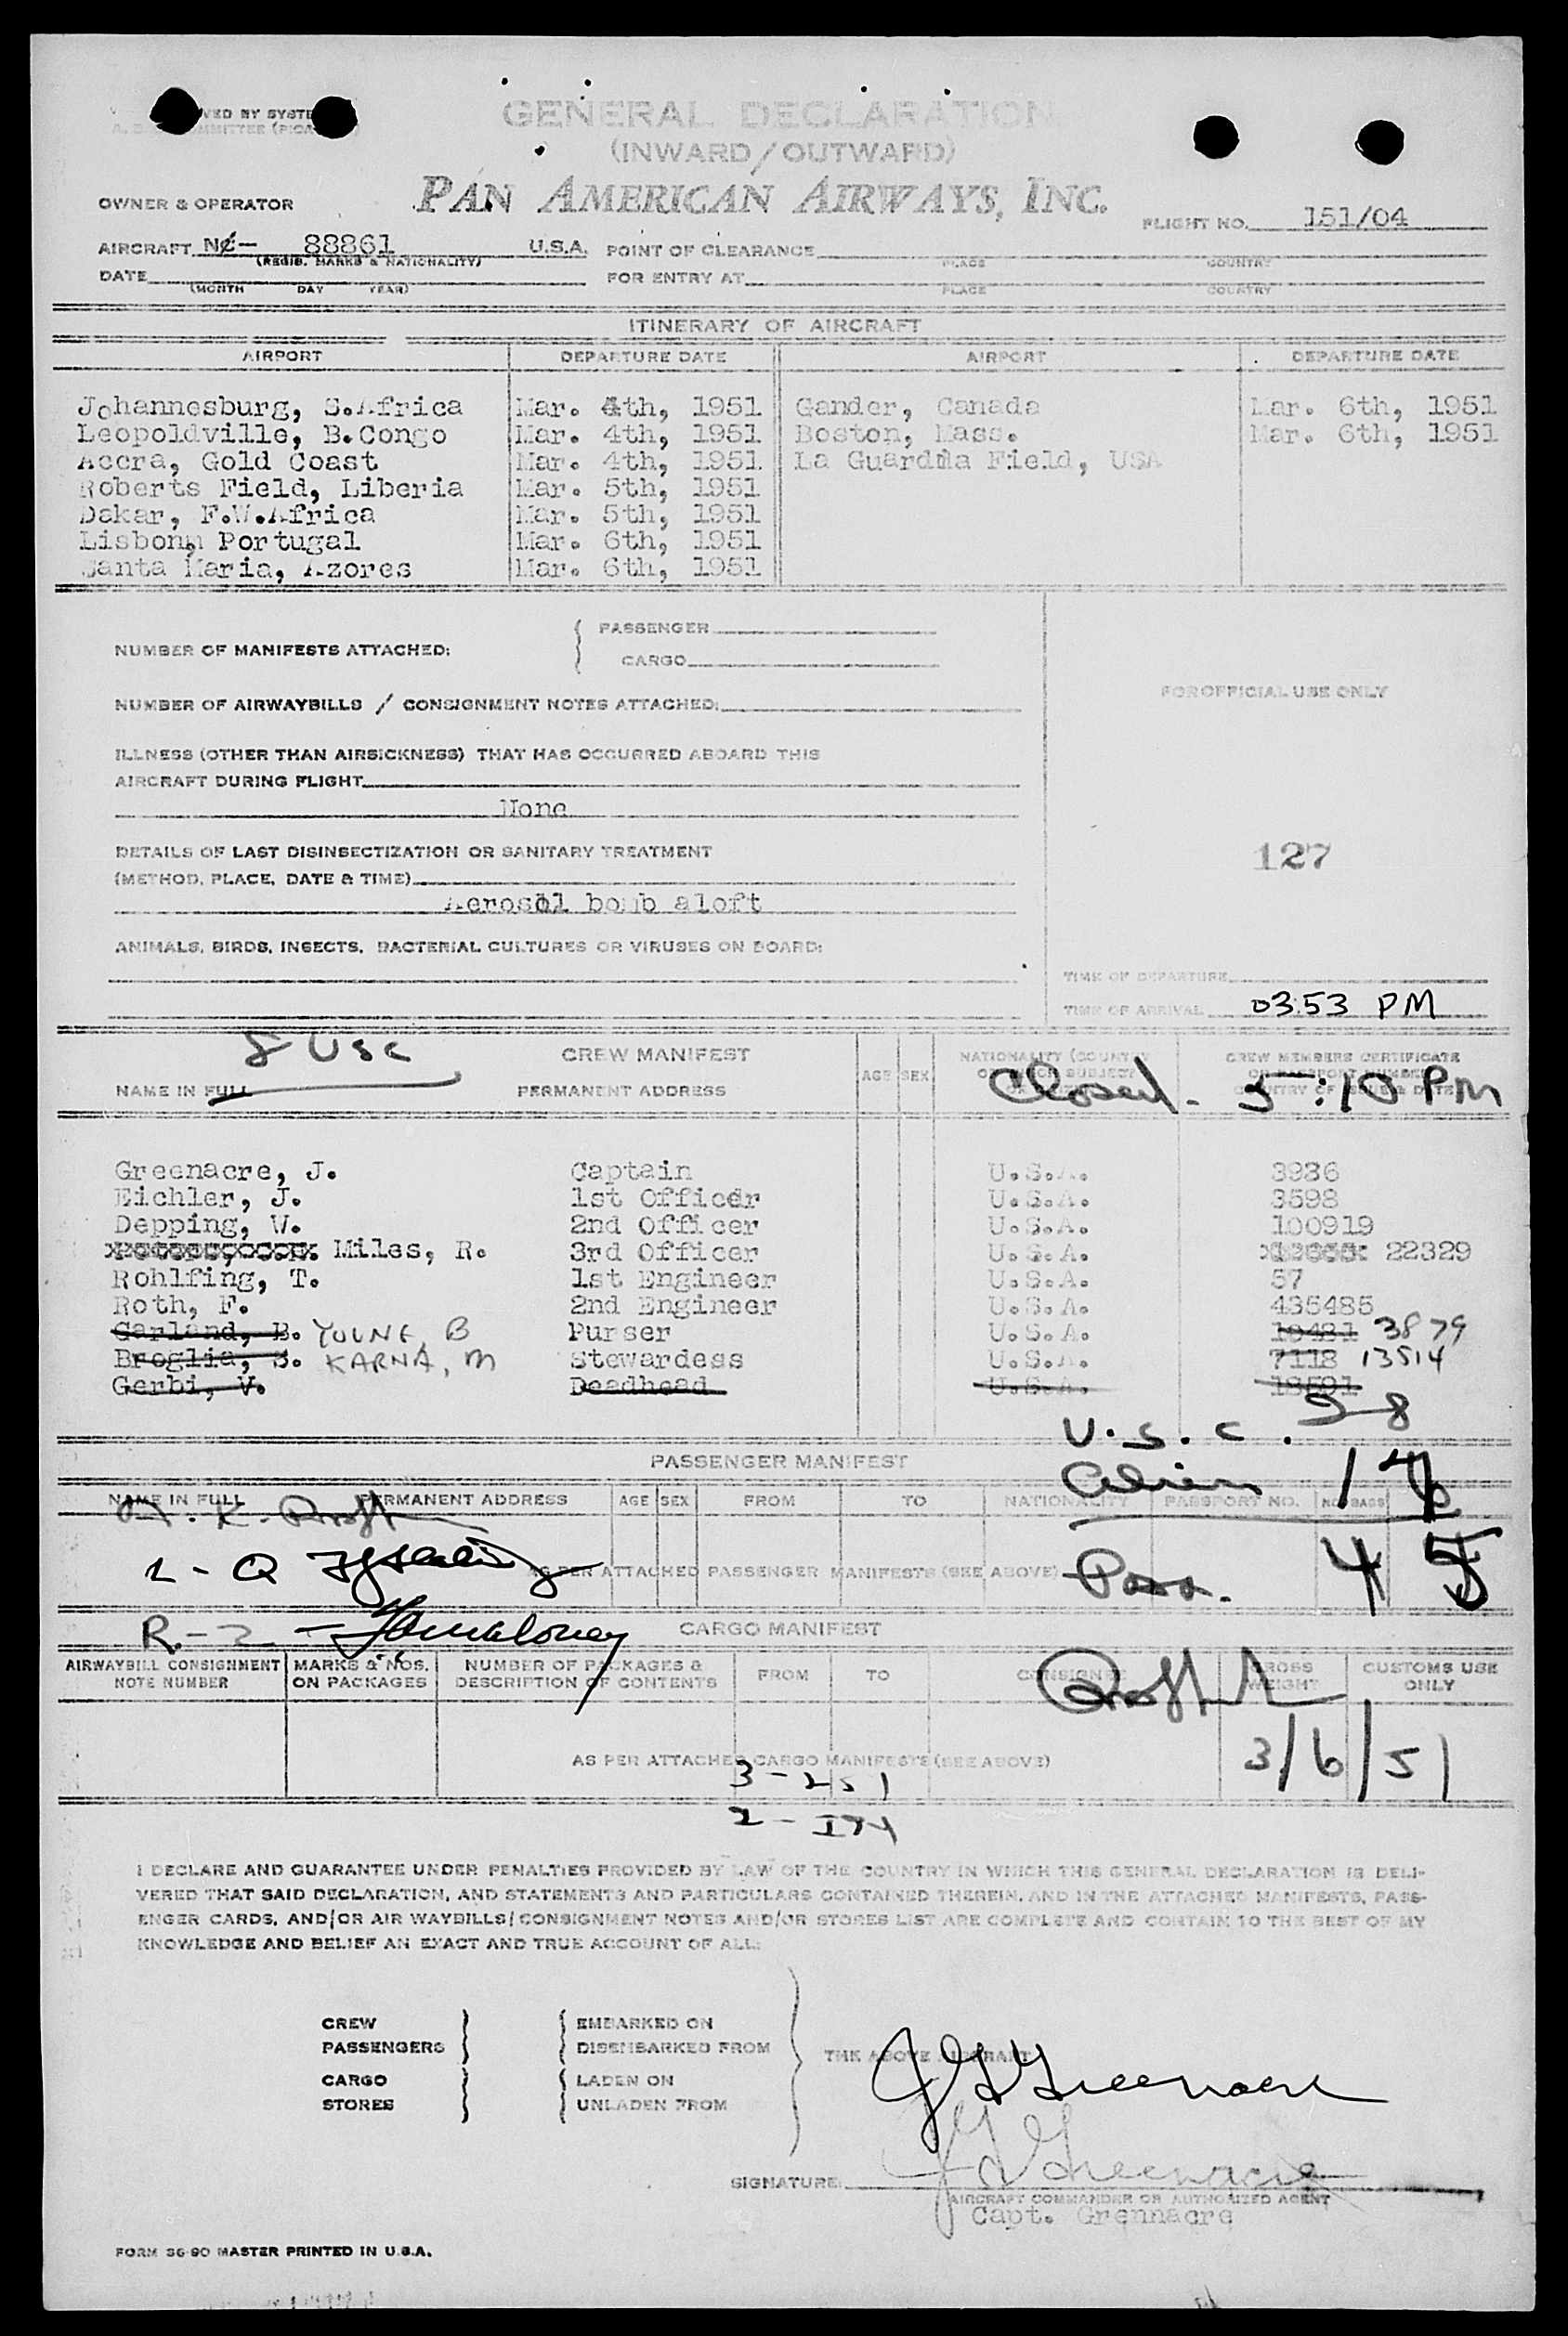 GENERAL DECLARATION
(INWARD/OUTWARD)
PAN AMERICAN AIRWAYS, INC.
OWNER & OPERATOR
FLIGHT NO. 151/04
AIRCRAFT 88861 U.S.A. POINT OF CLEARANCE
(REGIS. MARKS & NATIONALITY) PLACE COUNTRY
DATE FOR ENTRY AT
(MONTH DAY YEAR) PLACE COUNTRY
ITINERARY OF AIRCRAFT
AIRPORT DEPARTURE DATE AIRPORT DEPARTURE DATE
Johannesburg, S.Africa Mar. 4th, 1951 Gander, Canada Mar. 6th, 1951
Leopoldville, B.Congo Mar. 4th, 1951 Boston, Mass. Mar. 6th, 1951
Accra, Gold Coast Mar. 4th, 1951 La Guardia Field, USA
Roberts Field, Liberia Mar. 5th, 1951
Dakar, F.W.Africa Mar. 5th, 1951
Lisbon, Portugal Mar. 6th, 1951
Santa Maria, Azores Mar. 6th, 1951
NUMBER OF MANIFESTS ATTACHED: PASSENGER
CARGO
FOR OFFICIAL USE ONLY
NUMBER OF AIRWAYBILLS / CONSIGNMENT NOTES ATTACHED:
ILLNESS (OTHER THAN AIRSICKNESS) THAT HAS OCCURRED ABOARD THIS
AIRCRAFT DURING FLIGHT
None
127
DETAILS OF LAST DISINSECTIZATION OR SANITARY TREATMENT
(METHOD, PLACE, DATE & TIME)
Aerosol bomb aloft
ANIMALS, BIRDS, INSECTS, BACTERIAL CULTURES OR VIRUSES ON BOARD:
TIME OF DEPARTURE
TIME OF ARRIVAL 03:53 PM
8 USC CREW MANIFEST
NAME IN FULL PERMANENT ADDRESS AGE SEX
Closed - 5:10 PM
Greenacre, J. Captain U.S.A. 3936
Eichler, J. 1st Officer U.S.A. 3598
Depping, W. 2nd Officer U.S.A. 100919
Miles, R. 3rd Officer U.S.A. 22329
Rohlfing, T. 1st Engineer U.S.A. 57
Roth, F. 2nd Engineer U.S.A. 435485
Garland, B. YOUNG, B Purser U.S.A. 3879
Broglia, S. KARNA, M Stewardess U.S.A. 7118 13514
Gerbi, V. Deadhead U.S.A. 18591
U.S.C. 28
PASSENGER MANIFEST
Alien 17
NAME IN FULL PERMANENT ADDRESS AGE SEX FROM TO NATIONALITY PASSPORT NO. NO. BAGS
AS PER ATTACHED PASSENGER MANIFESTS (SEE ABOVE)
Pass. 45
CARGO MANIFEST
AIRWAYBILL CONSIGNMENT NOTE NUMBER MARKS & NOS. ON PACKAGES NUMBER OF PACKAGES & DESCRIPTION OF CONTENTS FROM TO CONSIGNEE GROSS WEIGHT CUSTOMS USE ONLY
AS PER ATTACHED CARGO MANIFESTS (SEE ABOVE)
3/6/51
I DECLARE AND GUARANTEE UNDER PENALTIES PROVIDED BY LAW OF THE COUNTRY IN WHICH THIS GENERAL DECLARATION IS DELI-
VERED THAT SAID DECLARATION, AND STATEMENTS AND PARTICULARS CONTAINED THEREIN, AND IN THE ATTACHED MANIFESTS, PASS-
ENGER CARDS, AND/OR AIR WAYBILLS/CONSIGNMENT NOTES AND/OR STORES LIST ARE COMPLETE AND CONTAIN TO THE BEST OF MY
KNOWLEDGE AND BELIEF AN EXACT AND TRUE ACCOUNT OF ALL:
CREW EMBARKED ON
PASSENGERS DISEMBARKED FROM
THE ABOVE AIRCRAFT
CARGO LADEN ON
STORES UNLADEN FROM
J G Greenacre
J G Greenacre
SIGNATURE:
AIRCRAFT COMMANDER OR AUTHORIZED AGENT
Capt. Grennacre
FORM 36-90 MASTER PRINTED IN U.S.A.